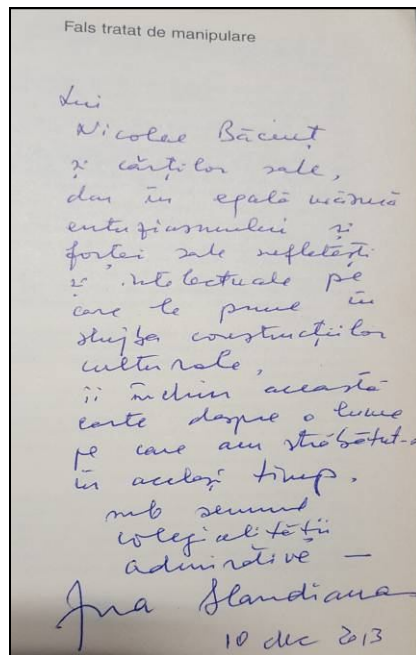 Fals tratat de manipulare
Lui
Nicolae Băciuț
și cărților sale,
dar în egală măsură
entuziasmului și
forței sale sufletești
și intelectuale pe
care le pune în
slujba construcțiilor
culturale,
îi închin această
carte despre o lume
pe care am străbătut-o
în același timp,
sub semnul
colegialității
admirative –
Ana Blandiana
10 dec 2013